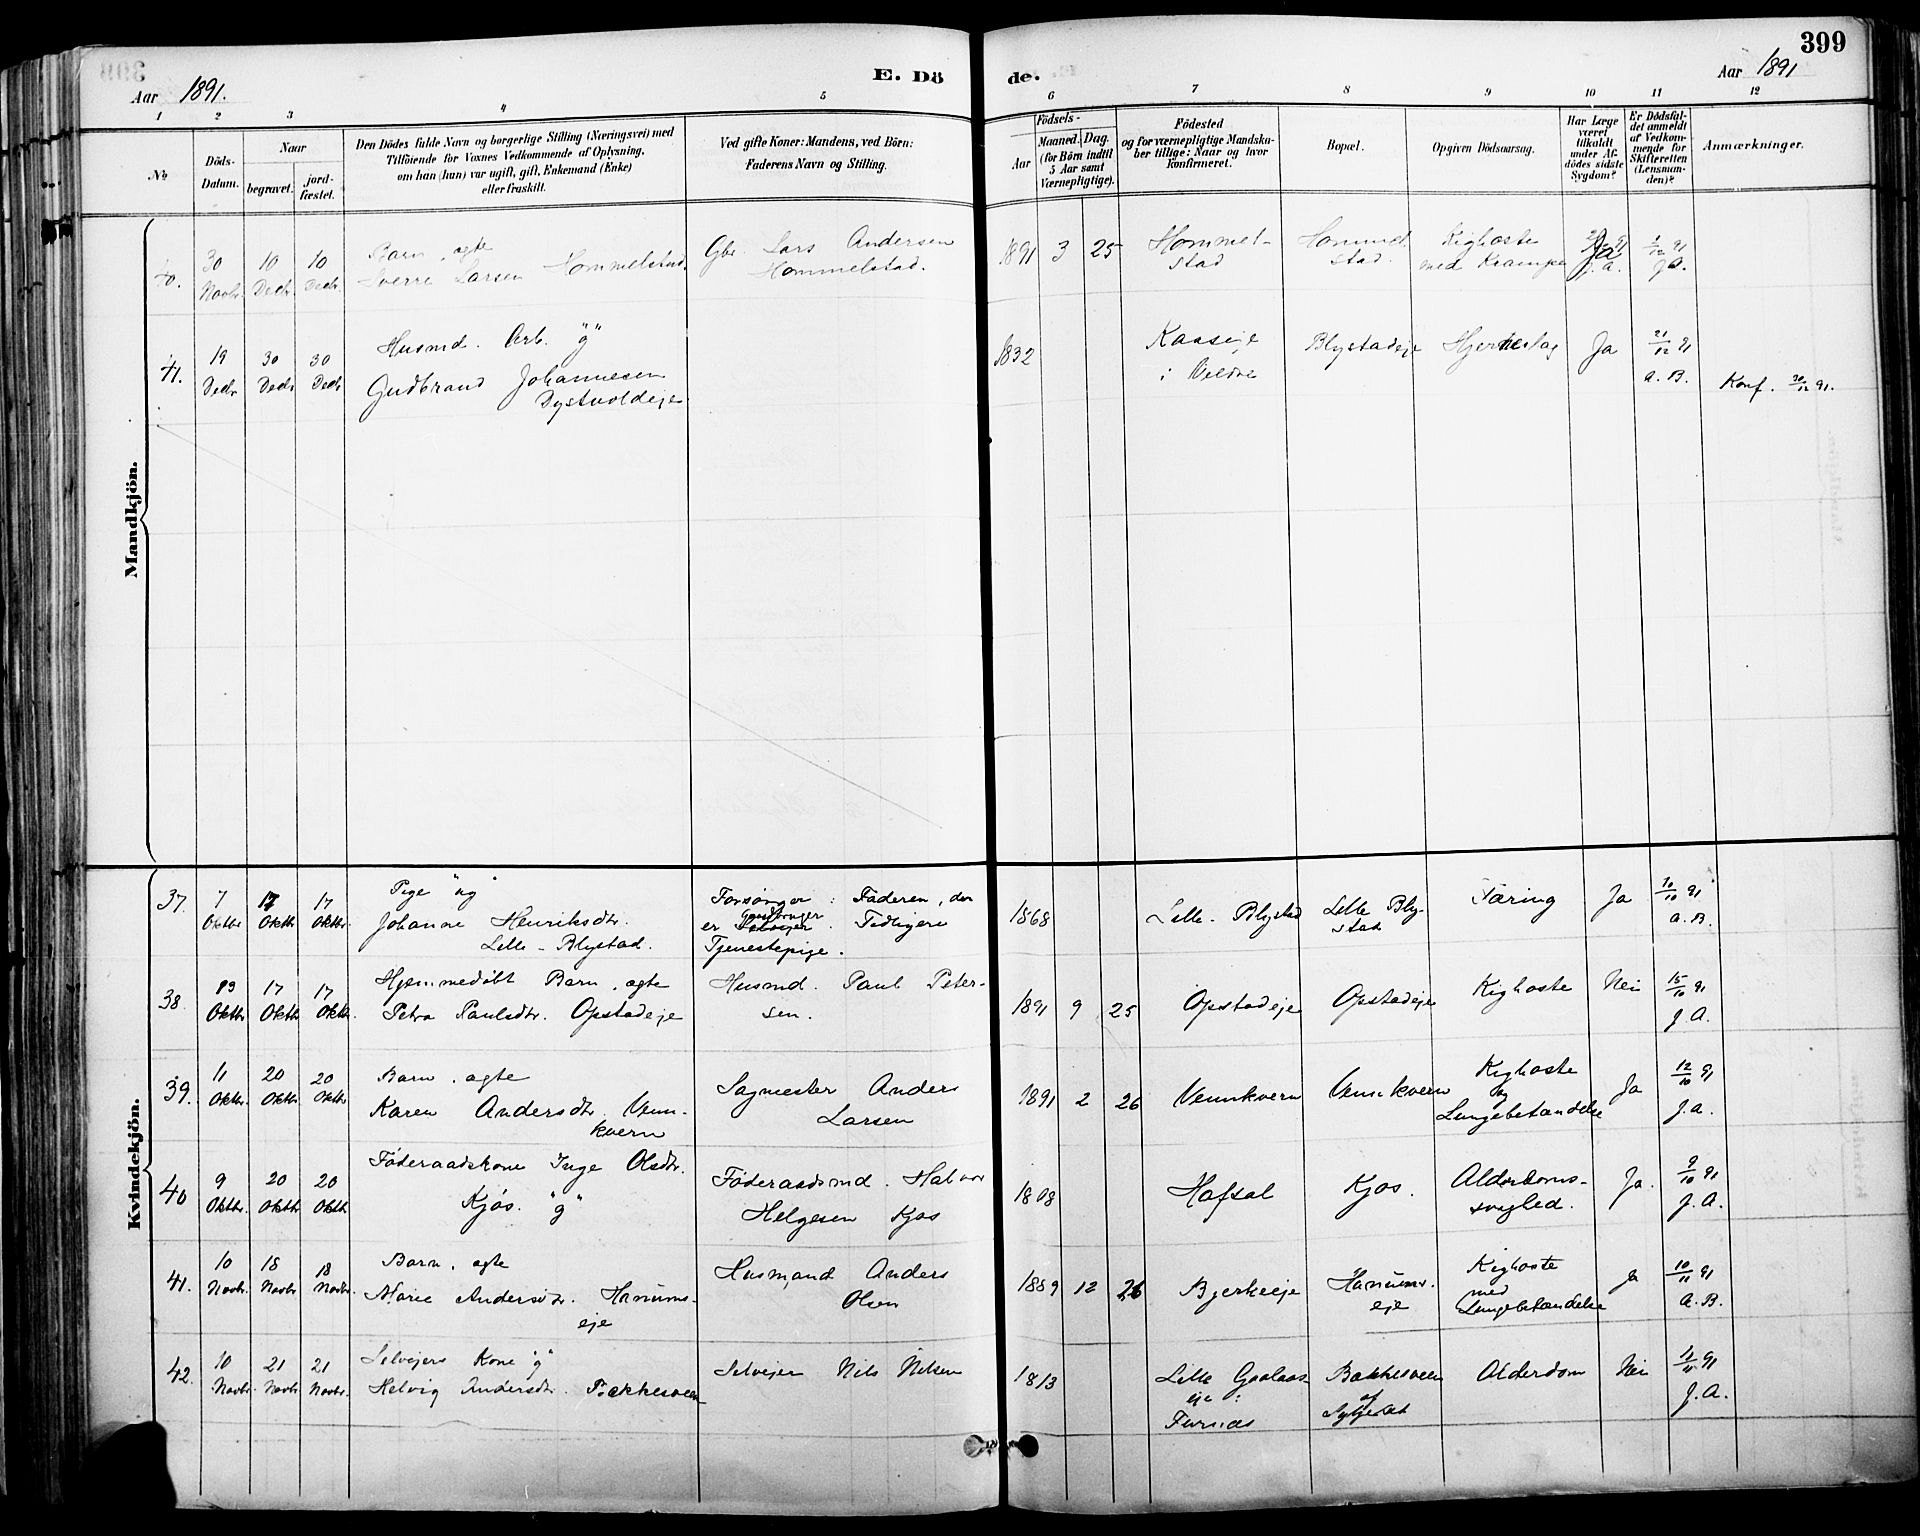 399
Aar 1891.
E. Dö
de.
Aar 1891
1 2 3 4 5 6 7 8 9 10 11 12
No
Döds-
Datum.
Naar
begravet.
jord-
fæstet.
Den Dödes fulde Navn og borgerlige Stilling (Næringsvei) med
Tilföiende for Voxnes Vedkommende af Oplysning,
om han (hun) var ugift, gift, Enkemand (Enke)
eller fraskilt.
Ved gifte Koner: Mandens, ved Börn:
Faderens Navn og Stilling.
Födsels-
Aar
Maaned.
Dag.
(for Börn indtil
5 Aar samt
Værnepligtige).
Födested
og for værnepligtige Mandska-
ber tillige: Naar og hvor
konfirmeret.
Bopæl.
Opgiven Dödsaarsag.
Har Læge
været
tilkaldt
under Af-
dödes sidste
Sygdom?
Er Dödsfal-
det anmeldt
af Vedkom-
mende for
Skifteretten
(Lensman-
den)?
Anmærkninger.
Mandkjön.
40.
30 Novbr.
10 Decbr.
10 Decbr.
Barn, ægte
Sverre Larsen Hommelstad.
Gbr. Lars Andersen
Hommelstad.
1891 3 25
Hommel-
stad
Hommel-
stad.
Kighoste
med Krampe
Ja
J.A.
1/12 91
J.A.
41.
19 Decbr
30 Decbr
30 Decbr
Husmd. Arb. "g"
Gudbrand Johannesen
Dystvoldeje
1832
Kaaseje
i Veldre
Blystadeje
Hjerteslag
Ja
21/12 91
A. B.
Konf. 30/12 91.
Kvindekjön.
37.
7 Oktbr
17 Oktbr
17 Oktbr.
Pige "ug"
Johanne Henriksdtr.
Lille-Blystad.
Forsørger: Faderen, der
er Gaardbruger. Tidligere
Tjenestepige.
1868
Lille-Blystad
Lille Bly-
stad
Tæring
Ja
10/10 91
A. B.
38.
13 Oktbr
17 Oktbr
17 Oktbr.
Hjemmedøbt Barn, ægte
Petra Paulsdtr. Opstadeje
Husmd. Paul Peter-
sen.
1891 9 25
Opstadeje
Opstadeje
Kighoste
Nei
15/10 91
J. A.
39.
11 Oktbr.
20 Oktbr
20 Oktbr
Barn, ægte
Karen Andersdtr. Venn-
kvern
Sagmester Anders
Larsen
1891 2 26
Vennkvern
Vennkvern
Kighoste
og
Lungebetændelse
Ja
12/10 91
J. A.
40
9 Oktbr.
20 Oktbr
20 Oktbr
Føderaadskone Inge Olsdtr.
Kjøs. "g"
Føderaadsmd. Halvor
Helgesen Kjøs
1808
Hafsal
Kjøs.
Alderdoms-
svaghed.
Ja.
9/10 91
J. A.
41.
10 Novbr
18 Novbr
18 Novbr.
Barn, ægte
Marie Andersdtr. Hanums-
eje
Husmand Anders
Olsen
1889 12 26
Bjerkeeje
Hanums-
eje
Kighoste
med
Lungebetændelse
Ja
10/11 91
A. B.
42.
10 Novbr.
21 Novbr
21 Novbr.
Selvejers Kone "g"
Helvig Andersdtr. Bakkesveen
Selvejer Nils Nilsen
1813
Lille Gaalaas-
eje i
Furnæs
Bakkesveen
af
Alderdom
Nei
11/11 91
J. A.